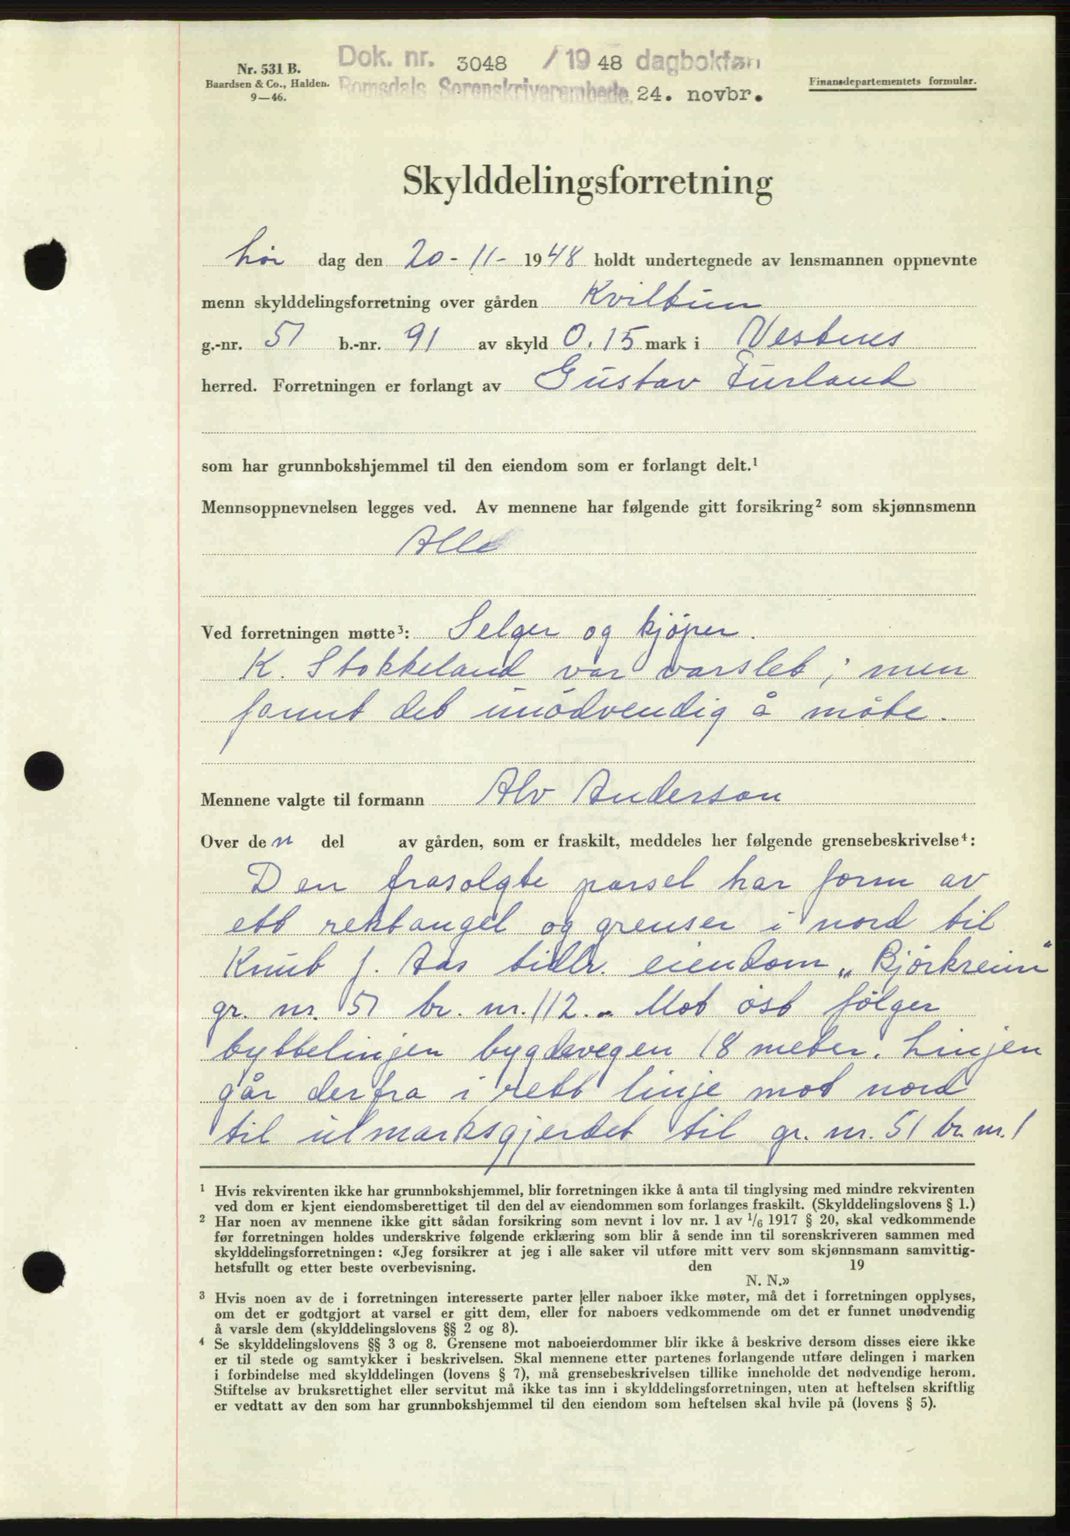 Dok. nr. 3048 / 19 48 dagbokført
Romsdals Sorenskriverembede. 24. novbr.
Nr. 531 B.
Baardsen & Co., Halden.
9—46.
Finansdepartementets formular.
Skylddelingsforretning
Lör dag den 20-11- 1948 holdt undertegnede av lensmannen oppnevnte
menn skylddelingsforretning over gården Kviltun
g.-nr. 51 b.-nr. 91 av skyld 0,15 mark i Vestnes
herred. Forretningen er forlangt av Gustav Furland
som har grunnbokshjemmel til den eiendom som er forlangt delt.¹
Mennsoppnevnelsen legges ved. Av mennene har følgende gitt forsikring² som skjønnsmenn
Alle
Ved forretningen møtte³: Selger og kjöper.
K. Stokkeland var varslet; men
fannt det unödvendig å möte.
Mennene valgte til formann Alv Anderson
Over den del av gården, som er fraskilt, meddeles her følgende grensebeskrivelse⁴:
Den frasolgte parsel har form av
ett rektangel og grenser i nord til
Knut J. Aas tidlr. eiendom „Björkreim"
gr. nr. 51 br. nr. 112. - Mot öst fölger
byttelinjen bygdevegen 18 meter. Linjen
går derfra i rett linje mot nord
til utmarksgjerdet til gr. nr. 51 br. nr. 1
¹ Hvis rekvirenten ikke har grunnbokshjemmel, blir forretningen ikke å anta til tinglysing med mindre rekvirenten
ved dom er kjent eiendomsberettiget til den del av eiendommen som forlanges fraskilt. (Skylddelingslovens § 1.)
² Har noen av mennene ikke gitt sådan forsikring som nevnt i lov nr. 1 av 1/6 1917 § 20, skal vedkommende
før forretningen holdes underskrive følgende erklæring som blir å sende inn til sorenskriveren sammen med
skylddelingsforretningen: «Jeg forsikrer at jeg i alle saker vil utføre mitt verv som skjønnsmann samvittig-
hetsfullt og etter beste overbevisning. den 19
N. N.»
³ Hvis noen av de i forretningen interesserte parter eller naboer ikke møter, må det i forretningen opplyses,
om det er godtgjort at varsel er gitt dem, eller for naboers vedkommende om det er funnet unødvendig
å varsle dem (skylddelingslovens §§ 2 og 8).
⁴ Se skylddelingslovens §§ 3 og 8. Grensene mot naboeierdommer blir ikke å beskrive dersom disses eiere ikke
er til stede og samtykker i beskrivelsen. Skal mennene etter partenes forlangende utføre delingen i marken
i forbindelse med skylddelingen (lovens § 7), må grensebeskrivelsen tillike inneholde det nødvendige herom.
Stiftelse av bruksrettighet eller servitut må ikke tas inn i skylddelingsforretningen, uten at heftelsen skriftlig
er vedtatt av den som har grunnbokshjemmel til den eiendom som heftelsen skal hvile på (lovens § 5).